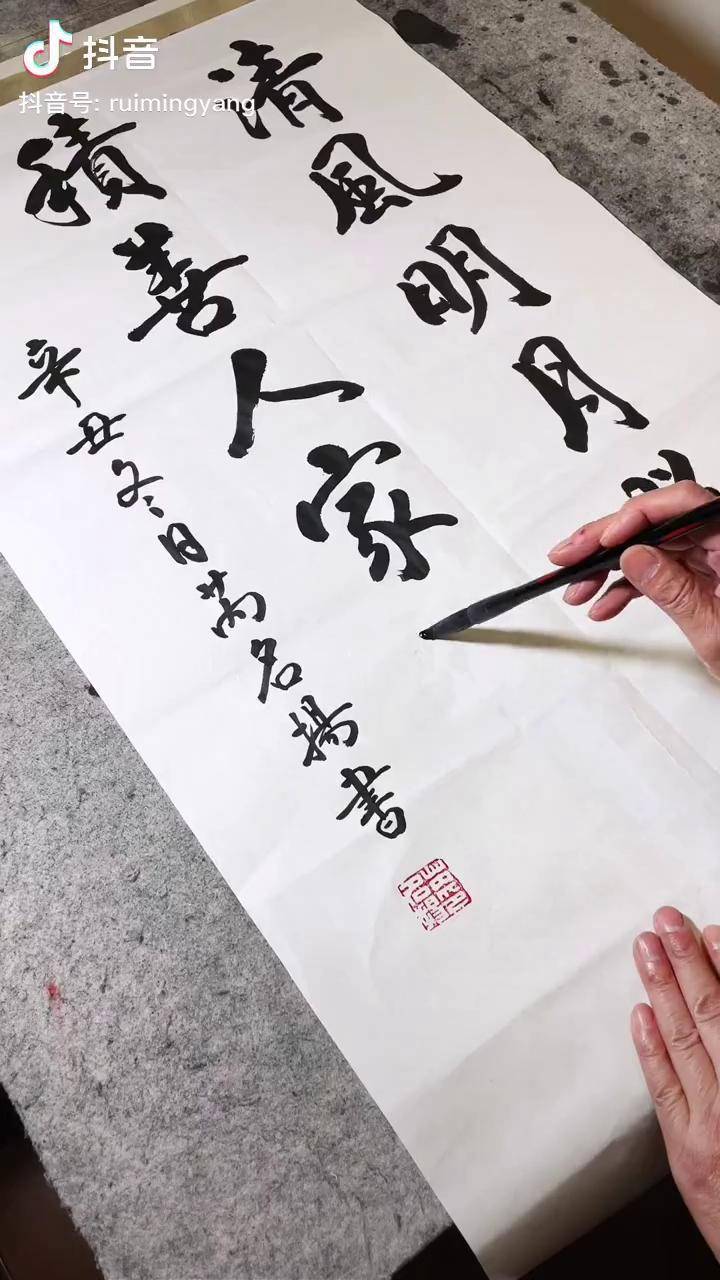 抖音
抖音号: ruimingyang
清風明月
積善人家
辛丑冬日萬名揚書